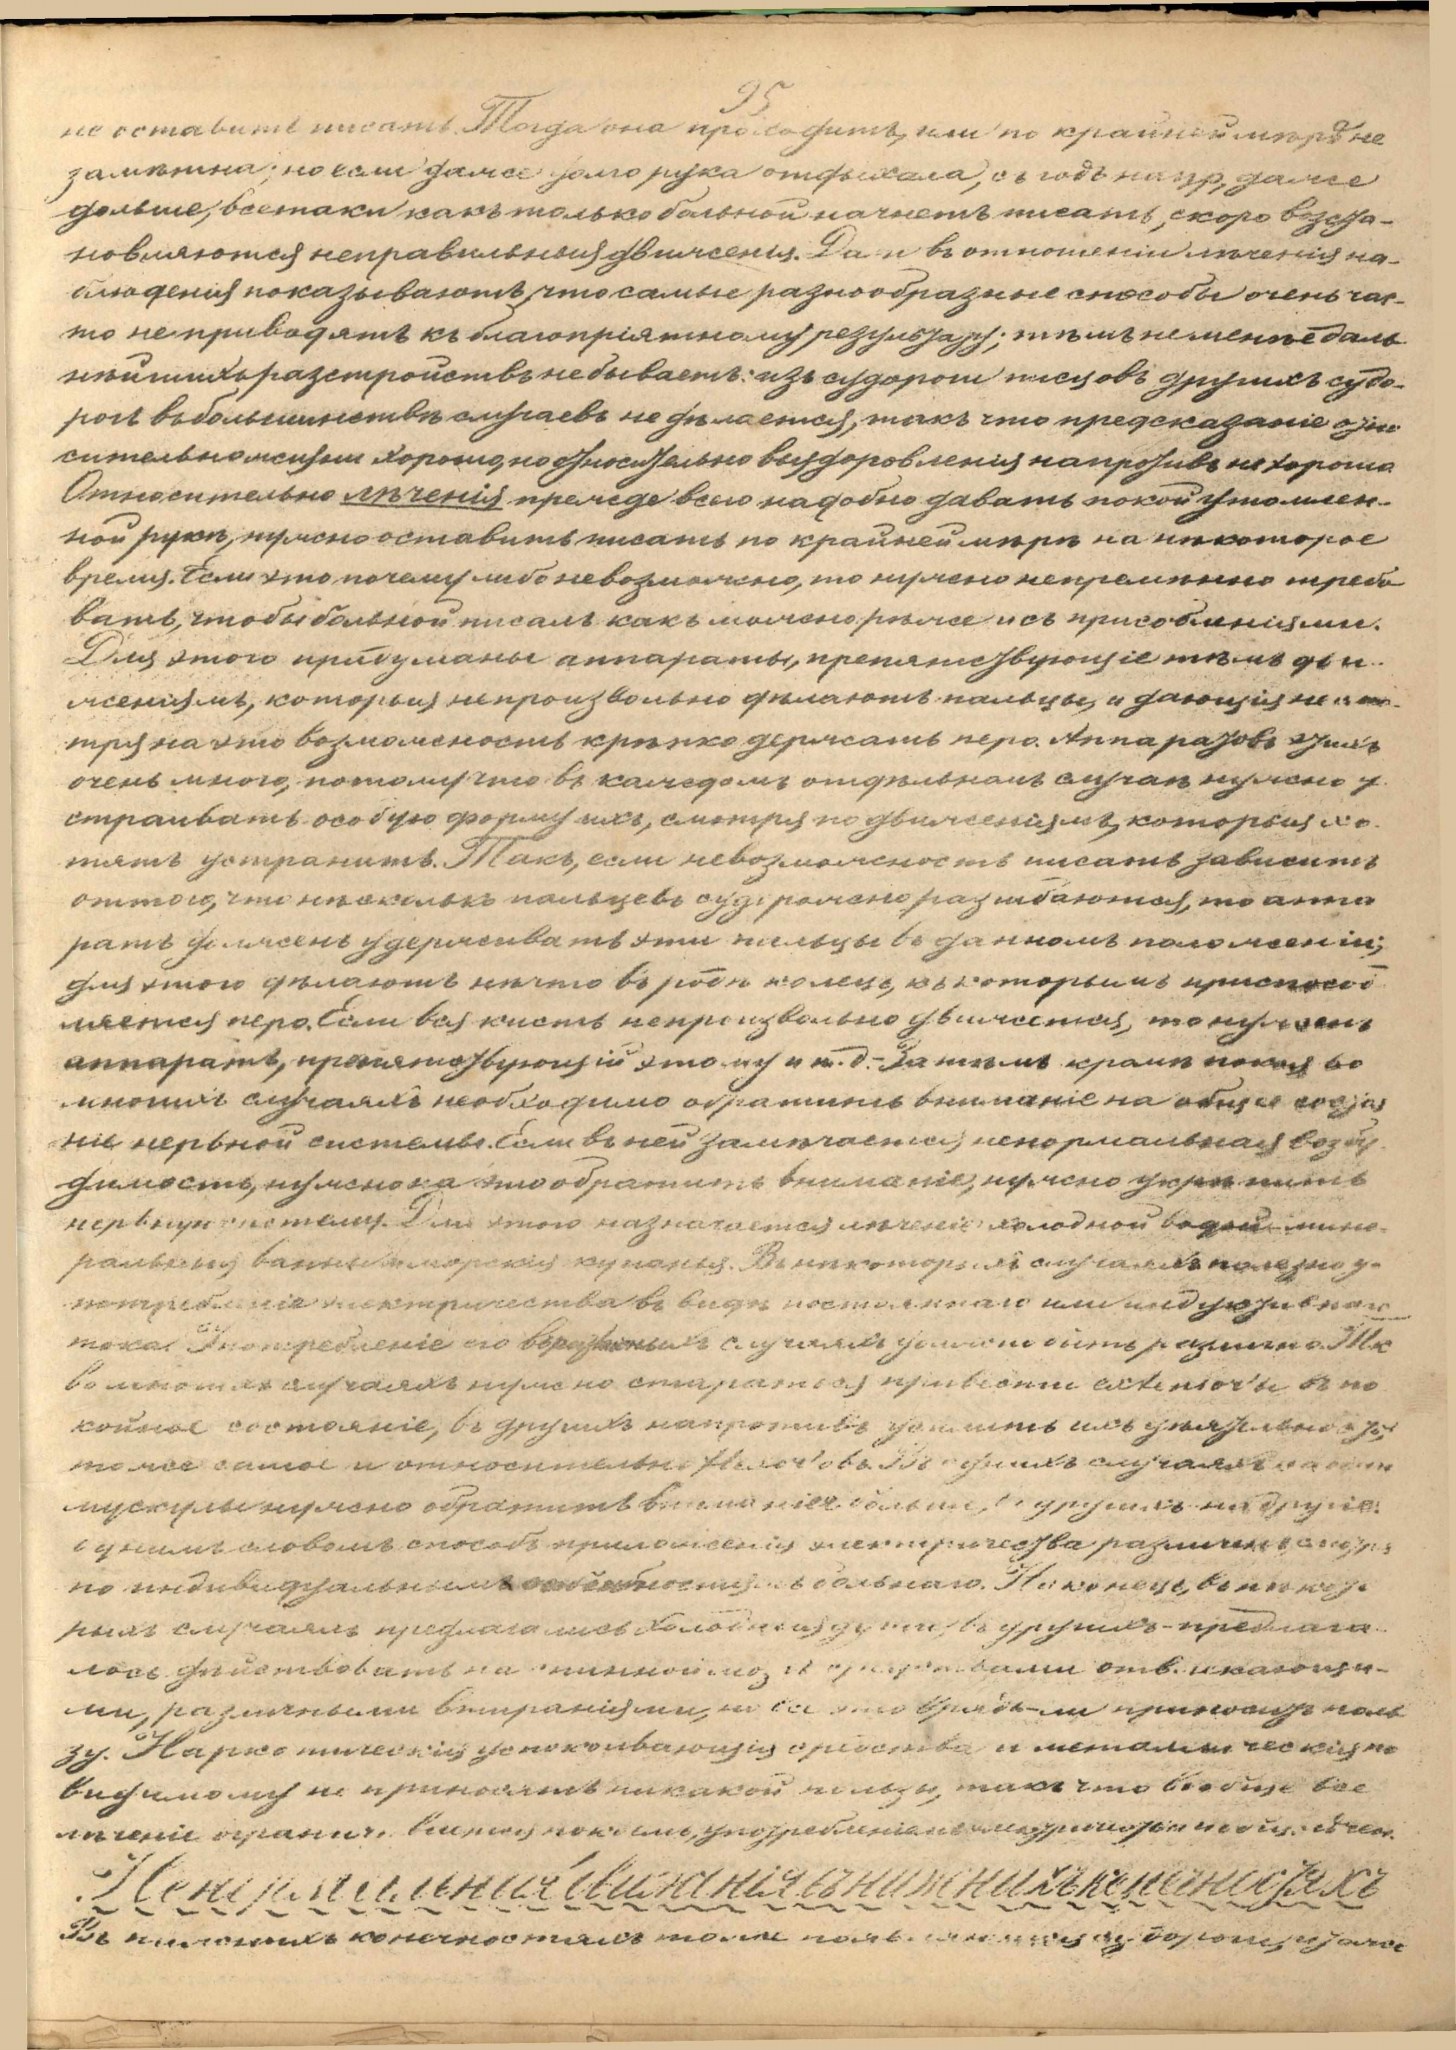 95
не оставитъ писать. Тогда она проходитъ, или по крайней мѣрѣ не
замѣтна; но если даже долго рука отдыхала, съ годъ напр, даже
дольше, всетаки какъ только больной начнетъ писать, скоро возста-
новляются неправильныя движенія. Да и въ отношеніи лѣченія на-
блюденія показываютъ, что самые разнообразные способы очень час-
то не приводятъ къ благопріятному результату; тѣмъ неменѣе даль
нѣйшихъ разстройствъ не бываетъ: изъ судорогъ писцовъ другихъ судо-
рогъ въ большинствѣ случаевъ не дѣлается, такъ что предсказаніе отно
сительно жизни хорошо, но относительно выздоровленія напротивъ не хорошо
Относительно лѣченія прежде всего надобно давать покой утомлен-
ной рукѣ, нужно оставить писать по крайней мѣрѣ на нѣкоторое
время. Если это почему либо невозможно, то нужно непремѣнно требо
вать, чтобы больной писалъ какъ можно рѣже и съ присобленіями.
Для этого придуманы аппараты, препятствующіе тѣмъ дви-
женіямъ, которыя непроизвольно дѣлаютъ пальцы, и дающія несмо-
тря на это возможность крѣпко держать перо. Аппаратовъ этихъ
очень много, потому что въ каждомъ отдѣльномъ случаѣ нужно у
страивать особую форму ихъ, смотря по движеніямъ, которыя хо-
тятъ устранить. Такъ, если невозможность писать зависитъ
оттого, что нѣсколько пальцевъ судорожно разгибаются, то аппа
ратъ долженъ удерживать эти пальцы въ данномъ положеніи;
для этого дѣлаютъ нѣчто въ родѣ колецъ, къ которымъ приспособ
ляется перо. Если вся кисть непроизвольно движется, то нуженъ
аппаратъ, препятствующій этому и т.д. Затѣмъ кромѣ покоя во
многихъ случаяхъ необходимо обратить вниманіе на общее состоя
ніе нервной системы. Если въ ней замѣчается ненормальная возбу
димость, нужно на это обратить вниманіе, нужно укрѣпить
нервную систему. Для этого назначается лѣченіе холодной водой мине-
ральныя ванны и морскія купанья. Въ нѣкоторыхъ случаяхъ полезно у-
потребленіе электричества въ видѣ постояннаго или индуктивнаго
тока. Употребленіе его въ разныхъ случаяхъ должно быть различно. Так
во многихъ случаяхъ нужно стараться привести extensor'ы въ по
койное состояніе, въ другихъ напротивъ усилить ихъ дѣятельность;
тоже самое и относительно flexor'овъ. Въ однихъ случаяхъ на одни
мускулы нужно обратить вниманіе больше, въ другихъ на другіе:
однимъ словомъ способъ приложенія электричества различенъ смотря
по индивидуальнымъ особенностямъ больнаго. Наконецъ, въ нѣкото
рыхъ случаяхъ предлагались холодныя души, въ другихъ - предлага
лось дѣйствовать на спинной мозгъ средствами отвлекающи-
ми, различными втираніями, но все это врядъ-ли приноситъ поль
зу. Наркотическія успокоивающія средства и металлическія по
видимому не приносятъ никакой пользы, такъ что вообще все
лѣченіе огранич. покоемъ, употребленіемъ
Ненормальныя движенія въ нижнихъ конечностяхъ
Въ нижнихъ конечностяхъ тоже появляются судороги,